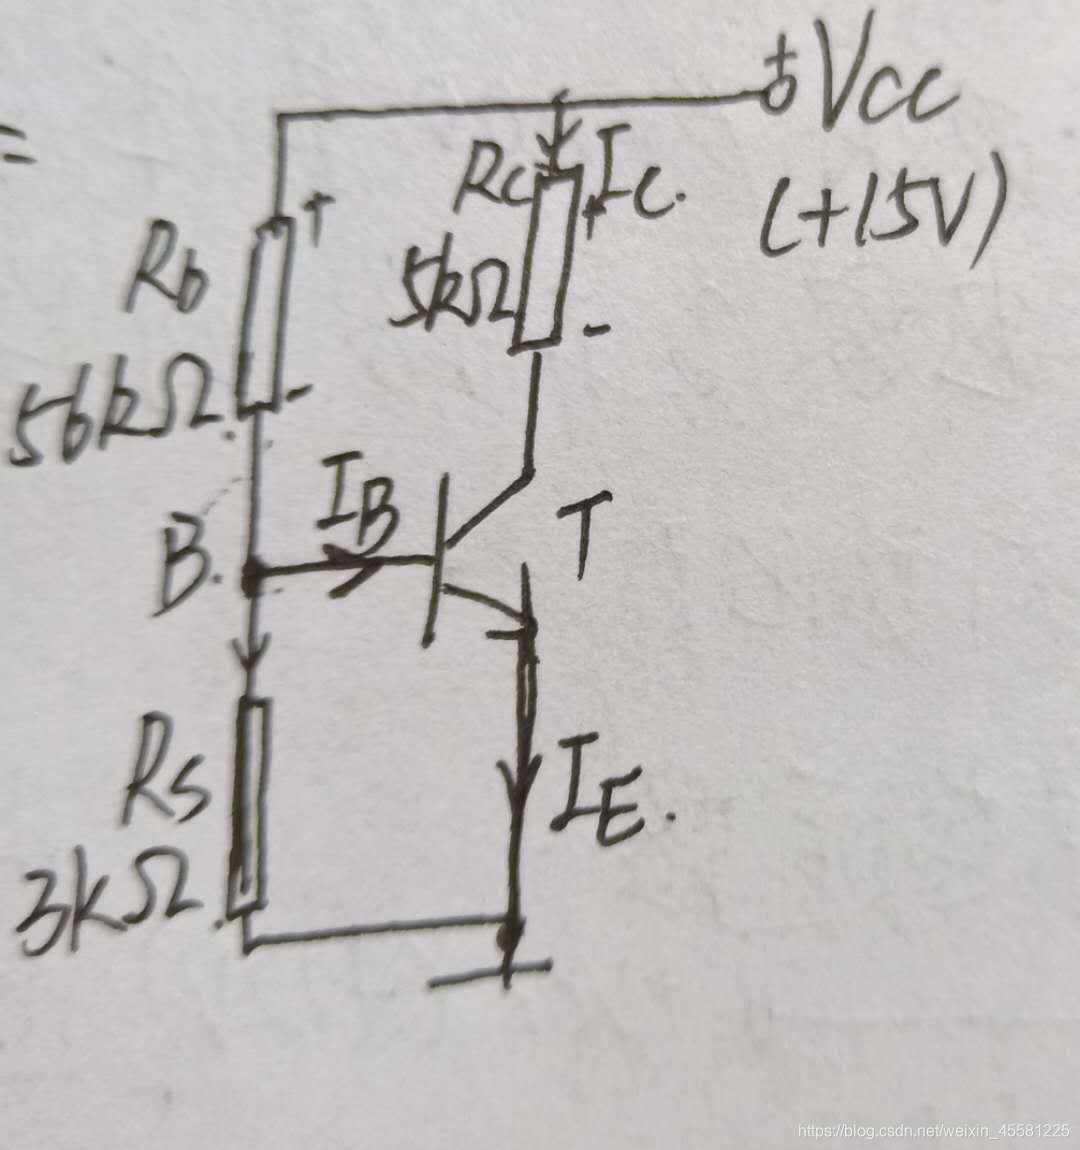 =
VCC
(+15V)
Rb
+
56kΩ
-
RC
IC.
+
5kΩ
-
IB
B.
T
RS
3kΩ
IE.
https://blog.csdn.net/weixin_45581225